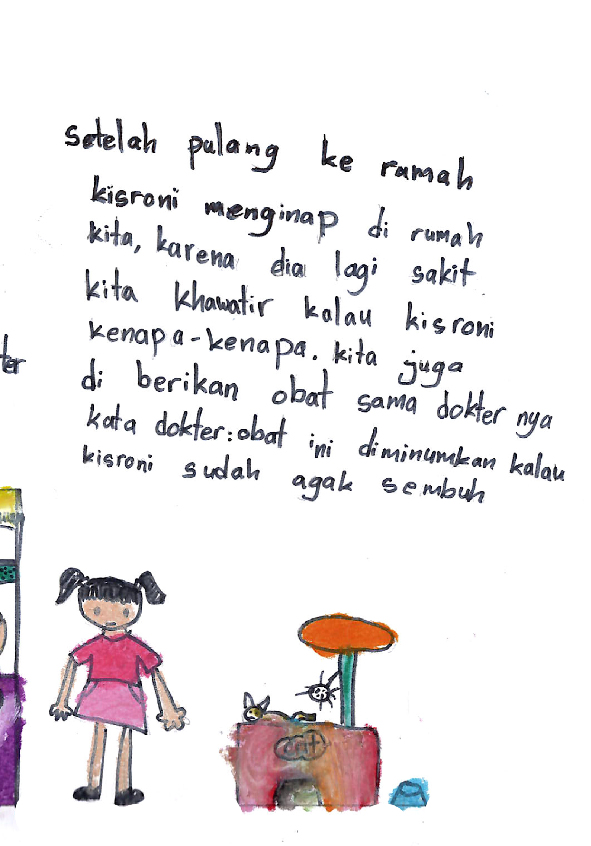 setelah pulang ke rumah
kisroni menginap di rumah
kita, karena dia lagi sakit
kita khawatir kalau kisroni
kenapa-kenapa. kita juga
di berikan obat sama dokter nya
kata dokter: obat ini diminumkan kalau
kisroni sudah agak sembuh
ter
cat